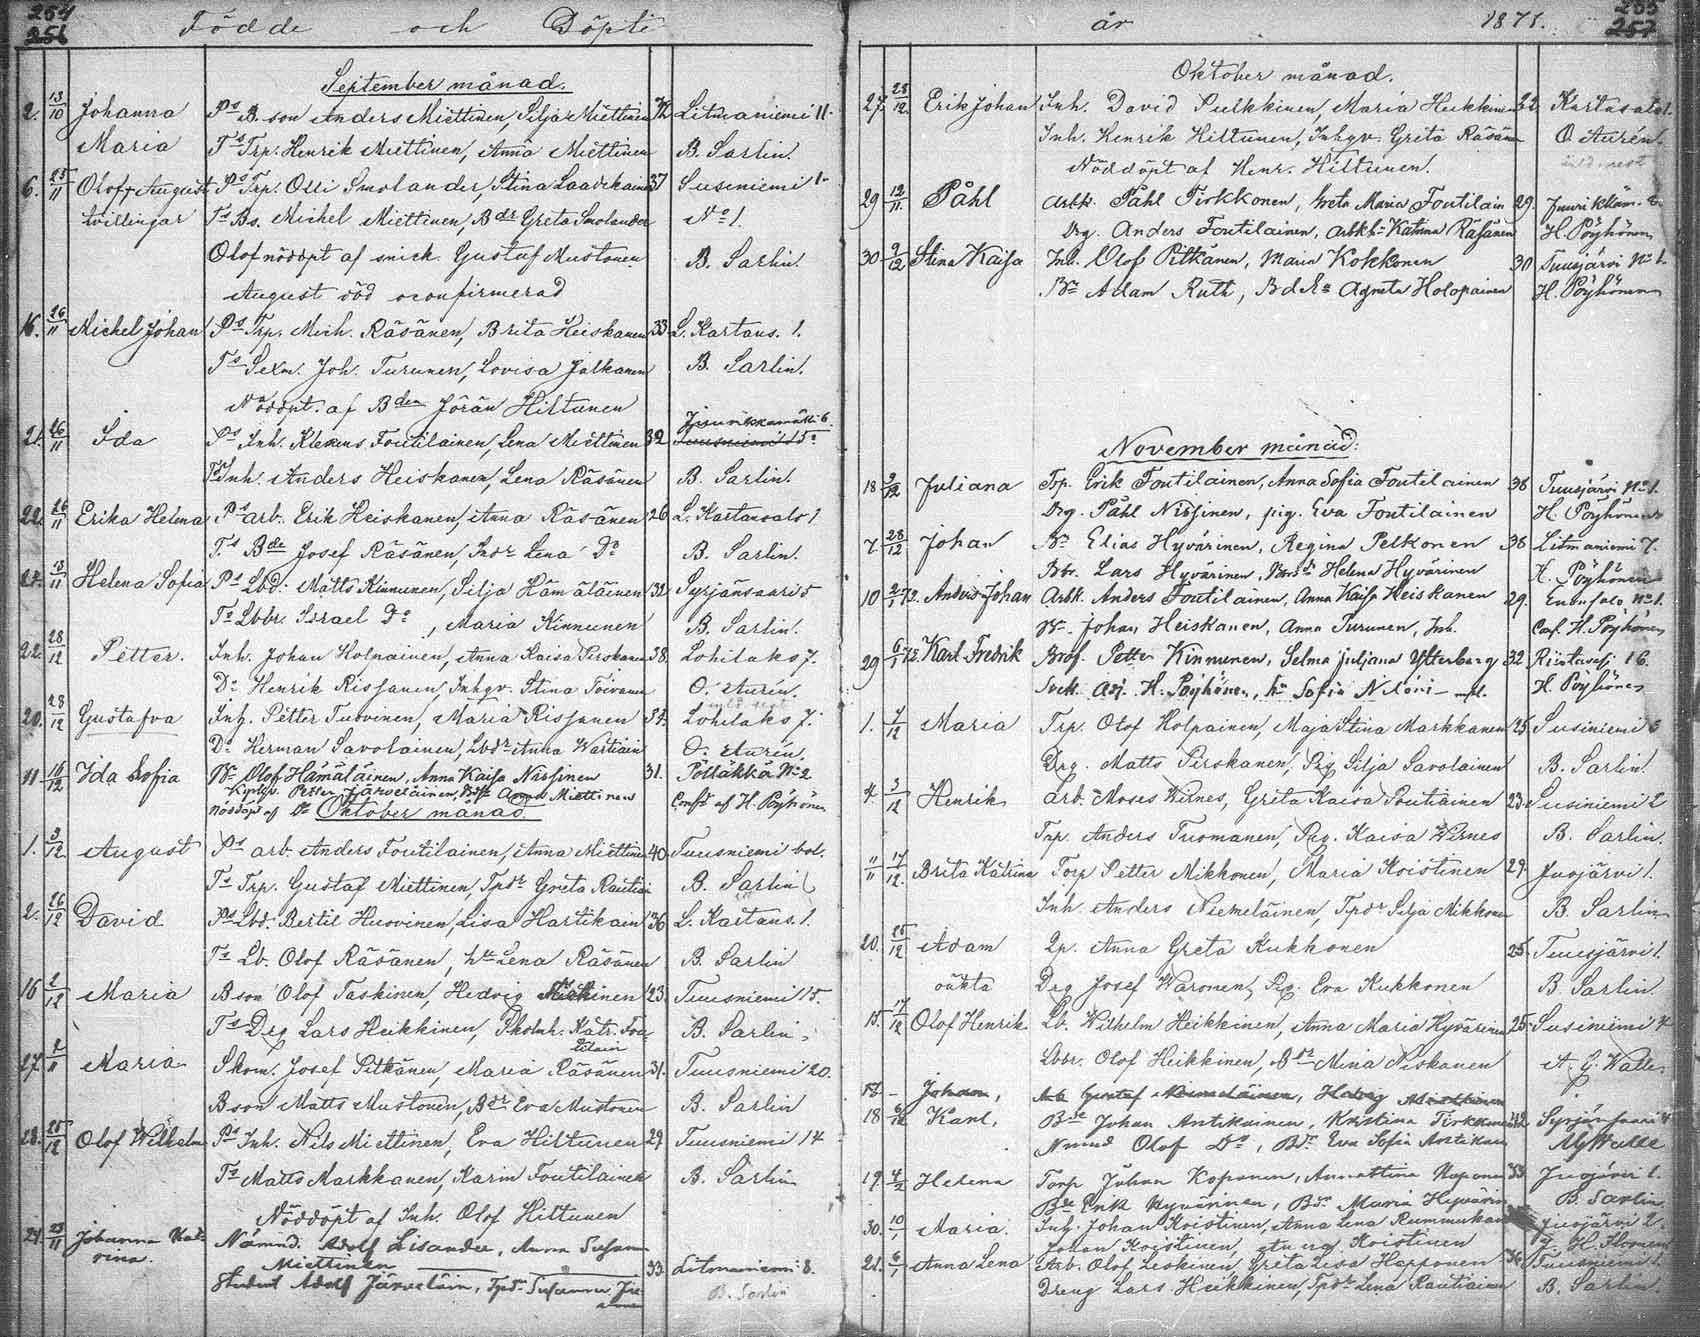 254
256
Födde och Döpte
September månad.
2. 13/10 Johanna Ps B. son Anders Miettinen, Silja Miettinen Litmaniemi 11.
Maria Ts Trp. Henrik Miettinen, Anna Miettinen B. Sarlin.
6. 25/11 Olof, August Ps Trp. Olli Smolander, Stina Laadikainen 37 Susiniemi 1
tvillingar Ts Bs. Michel Miettinen, Bdr Greta Smolander No 1.
Olof nöddöpt af snick. Gustaf Mustonen B. Sarlin.
August död oconfirmerad
16. 26/11 Michel Johan Ps Trp. Mich. Räsänen, Brita Heiskanen 33 L. Kartans. 1.
Ts Sexm. Joh. Turunen, Lovisa Jalkanen B. Sarlin.
Nöddöpt. af Bden Jöran Hiltunen
Juurikkamäki 6.
21. 26/11 Ida Ps Inh. Klemens Foutilainen, Lena Miettinen 32
Ts Inh. Anders Heiskanen, Lena Räsänen B. Sarlin.
22. 26/11 Erika Helena Ps arb. Erik Heiskanen, Anna Räsänen 26 L. Kartansalo 1
Ts Bde Josef Räsänen, Indr Lena Do B. Sarlin.
13/11 Helena Sofia Ps Lbd. Matts Kinnunen, Silja Hämäläinen 32 Syrjänsaari 5
Ts Lbbr. Israel Do, Maria Kinnunen B. Sarlin.
22. 28/12 Petter. Inh. Johan Holpainen, Anna Kaisa Pirskanen 38. Lohilaks 7.
Do Henrik Rissanen, Inhgv. Stina Toivanen O. Aurén.
20. 28/12 Gustafva Inh. Petter Tuovinen, Maria Rissanen 34. Lohilaks 7.
Do Herman Savolainen, Lbdr Anna Wartiain O. Aurén.
11 16/12 Ida Sofia Bn Olof Hämäläinen, Anna Kaisa Nissinen 31. Pölläkkä No 2
Petter Järveläinen, Anna Miettinen Confd af H. Pöyhönen
nöddöpt af Do
Oktober månad
1. 3/12 August Ps arb. Anders Foutilainen, Anna Miettinen 40 Tuusniemi bol.
Ts Trp. Gustaf Miettinen, Tpdr Greta Rautiai B. Sarlin
2. 26/12 David Ps Lbd. Bertil Huovinen, Lisa Hartikain 36 L. Kartans. 1.
Ts Lb. Olof Räsänen, hu Lena Räsänen B. Sarlin
16 2/12 Maria Bson Olof Taskinen, Hedvig 23. Tuusniemi 15.
Ts Drg Lars Heikkinen, Katr. Fou- B. Sarlin
tilain
27. 2/11 Maria Skom. Josef Pitkänen, Maria Räsänen 31. Tuusniemi 20.
Bson Matts Mustonen, Bdr Eva Mustonen B. Sarlin
28. 25/12 Olof Wilhelm Ps Inh. Nils Miettinen, Eva Hiltunen 29. Tuusniemi 14
Ts Matts Markkanen, Karin Foutilainen B. Sarlin
Nöddöpt af Inh. Olof Hiltunen
24. 23/11 Johanna Kat- Nämnd. Adolf Lisander, Anna Susann
rina. Miettinen 33. Litmaniemi 8.
Student Adolf Järveläin, Tpdr Susanna B. Sarlin
255
257
år 1871.
Oktober månad.
27. 28/12 Erik Johan Inh. David Pulkkinen, Maria Heikkinen 32. Kartasalo 1.
Inh. Henrik Hiltunen, Inhgv. Greta Räsänen O. Aurén.
Nöddöpt af Henr. Hiltunen.
29 12/11 Påhl Arbk. Påhl Tirkkonen, Greta Maria Foutilain 29.
Drg. Anders Foutilainen, arbkh Katrina Räsänen H. Pöyhönen
30 9/12 Stina Kaisa Inh. Olof Pitkänen, Maria Kokkonen 30 Tuusjärvi No 1.
Bn Adam Ruth, Agneta Holopainen H. Pöyhönen
November månad:
18 3/12 Juliana Trp. Erik Foutilainen, Anna Sofia Foutilainen 36 Tuusjärvi No 1.
Drg. Påhl Nissinen, pig. Eva Foutilainen H. Pöyhönen
7. 28/12 Johan Bn Elias Hyvärinen, Regina Pelkonen 36 Litmaniemi 7.
Bbr. Lars Hyvärinen, Helena Hyvärinen H. Pöyhönen
10 2/1 72. Anders Johan Arbk. Anders Foutilainen, Anna Kaisa Heiskanen 29. Enonsalo No 1.
Bn Johan Heiskanen, Anna Turunen, Inh. Conf. H. Pöyhönen
29 6/1 72. Karl Fredrik Petter Kinnunen, Selma Juliana Ytterberg 32. Riistavesi 16.
H. Pöyhönen, Sofia H. Pöyhönen
1. 7/12 Maria Trp. Olof Holpainen, Maja Stina Markkanen 25 Susiniemi 3
Drg. Matts Pirskanen, Pig Silja Savolainen B. Sarlin.
4. 3/12 Henrik arb. Moses Wirnes, Greta Kaisa Poutiainen 23 Susiniemi 2
Trp. Anders Tuomanen, Pig. Kaisa Wirnes B. Sarlin.
11/11 17/12. Brita Katrina Torp Petter Mikkonen, Maria Koistinen 29. Juojärvi 1.
Inh. Anders Niemeläinen, Tpdr Silja Mikkonen B. Sarlin
20. 25/12 Adam Qp. Anna Greta Kukkonen 25 Tuusjärvi 1.
oäkta Drg Josef Waronen, Pig. Eva Kukkonen B. Sarlin.
15. 17/12 Olof Henrik Lb. Wilhelm Heikkinen, Anna Maria Hyvärinen 25 Susiniemi 4
Lbbr. Olof Heikkinen, Bdr Mina Niskanen A. G. Walle.
18 - Johan, Arb Gustaf Niemeläinen, Hedvig
18 Karl, Bde Johan Antikainen, Kristina Tirkkonen 42 Syrjänsaari 4
Nämnd Olof Do, Bdr Eva Sofia Antikain AGWalle
19. 4/2 Helena Torp Johan Koponen, Annastina Koponen 33 Juojärvi 1.
Bde Erik Hyvärinen, Bdr Maria Hyvärin B. Sarlin
30. 10/1 Maria. Inh. Johan Koistinen, Anna Lena Rummukain Juojärvi 2.
Johan Koistinen, Koistinen
21. 6/1 Anna Lena Arb. Olof Leskinen, Greta Lisa Happonen 36 Tuusniemi 1.
Dreng Lars Heikkinen, Tpdr Lena Rautiainen B. Sarlin.